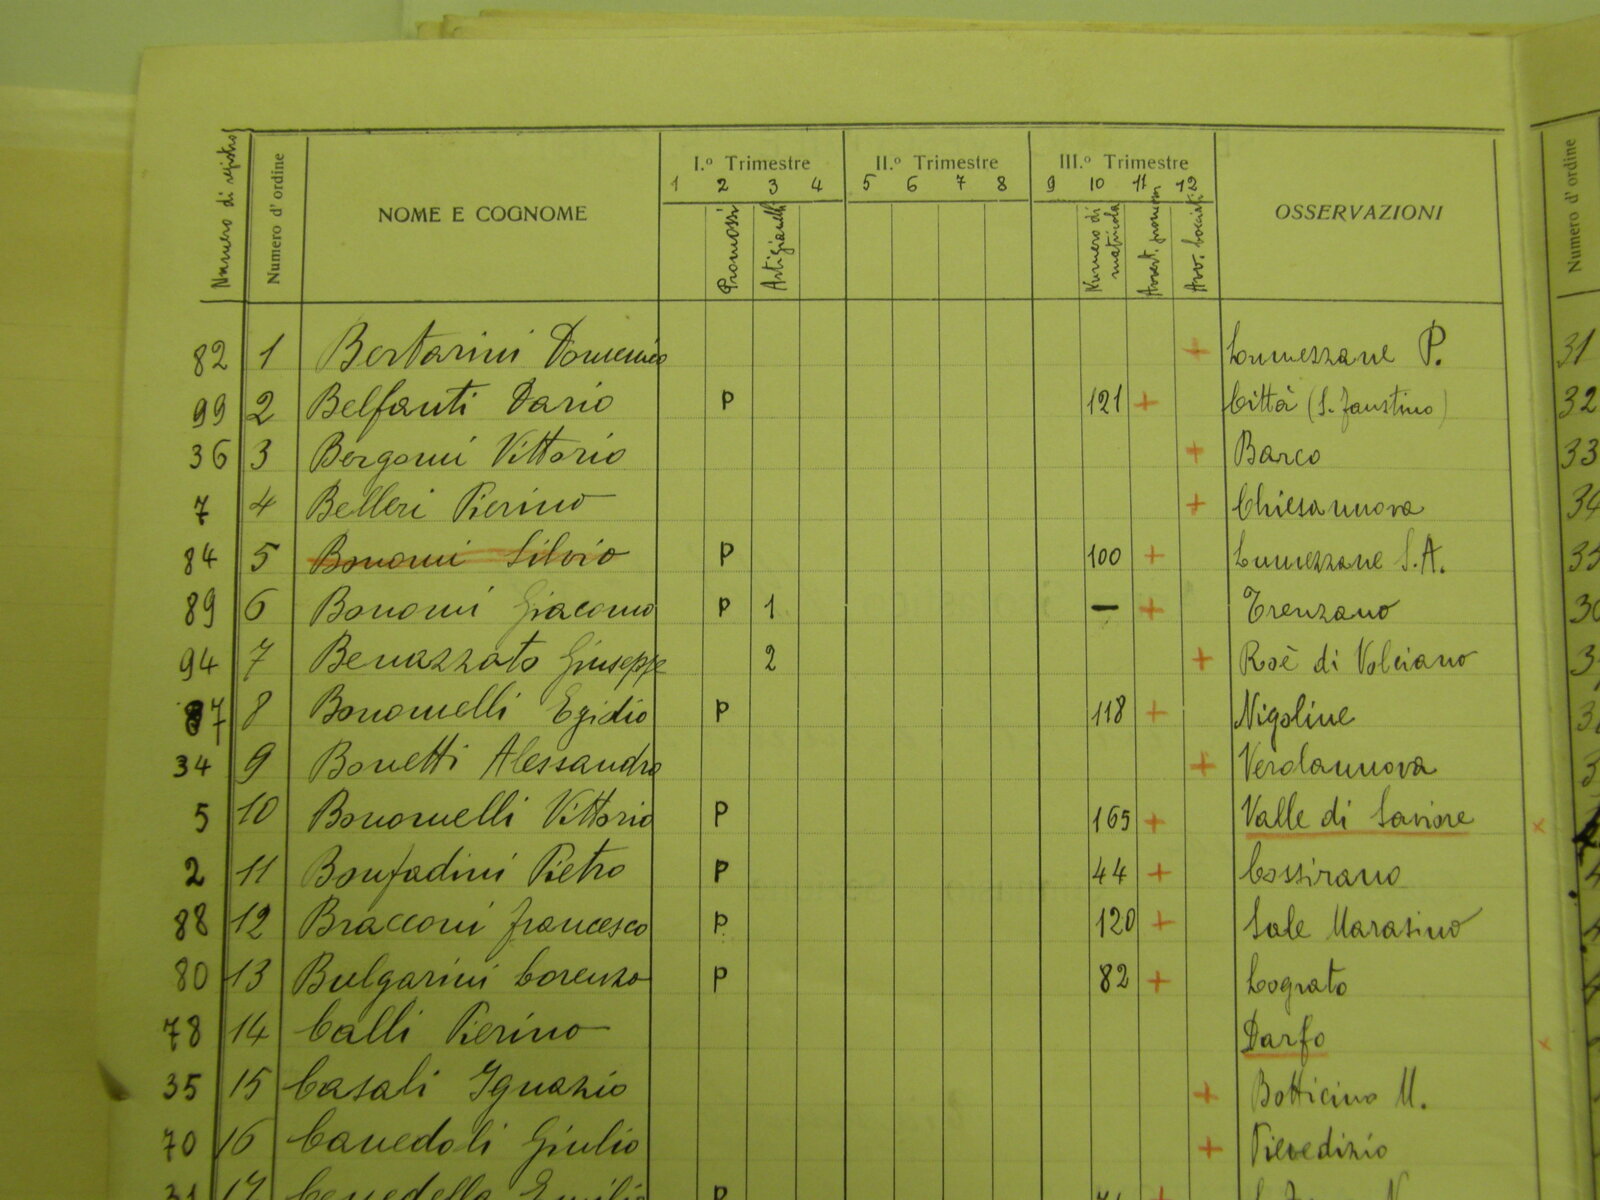 Numero di registro
Numero d' ordine
NOME E COGNOME
I.º Trimestre
II.º Trimestre
III.º Trimestre
OSSERVAZIONI
Numero d' ordine
1 2 3 4 5 6 7 8 9 10 11 12
Promossi
Artigianelli
Numero di matricola
Avvert. promossi
Avv. bocciati
82 1 Bertarini Domenico + Lumezzane P. 31
99 2 Belfanti Dario P 121 + Città (S. Faustino) 32
36 3 Bergomi Vittorio + Barco 33
7 4 Belleri Pierino + Chiesanuova 34
84 5 Bonomi Silvio P 100 + Lumezzane S.A. 35
89 6 Bonomi Giacomo P 1 — + Trenzano
94 7 Benazzato Giuseppe 2 + Roè di Volciano
87 8 Bonomelli Egidio P 118 + Nigoline
34 9 Bonetti Alessandro + Verolanuova
5 10 Bonomelli Vittorio P 165 + Valle di Saviore x
2 11 Bonfadini Pietro P 44 + Cossirano
88 12 Bracconi Francesco P 120 + Sale Marasino
80 13 Bulgarini Lorenzo P 82 + Lograto
78 14 Calli Pierino Darfo x
35 15 Casali Ignazio + Botticino M.
70 16 Canedoli Giulio + Pievedizio
31 17 P +